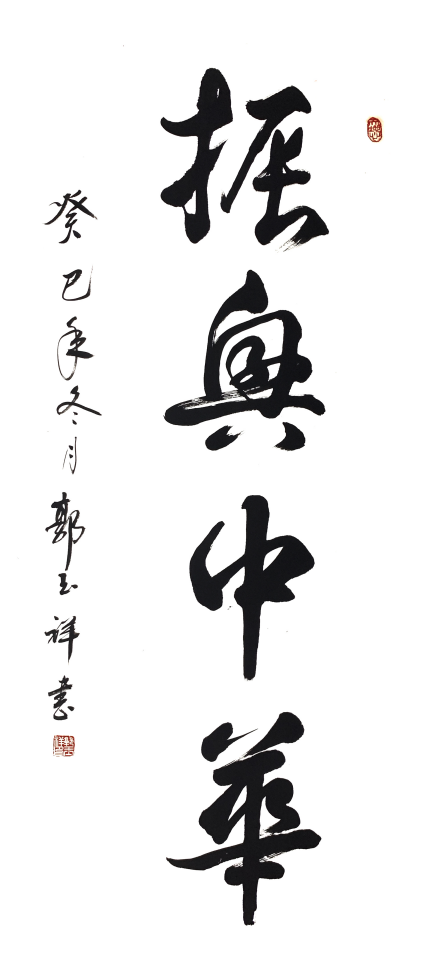 振興中華
癸巳年冬月郭玉祥書